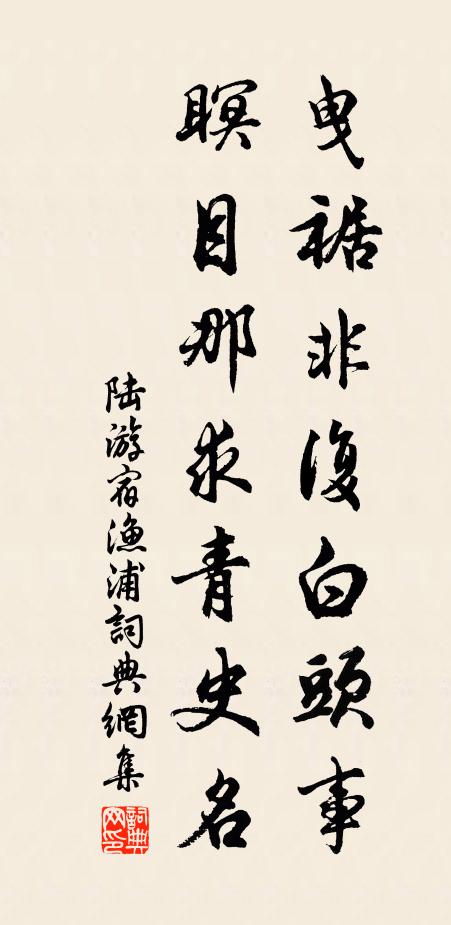 曳裾非復白頭事
瞑目那求青史名
陆游宿漁浦詞典網集
詞典网印